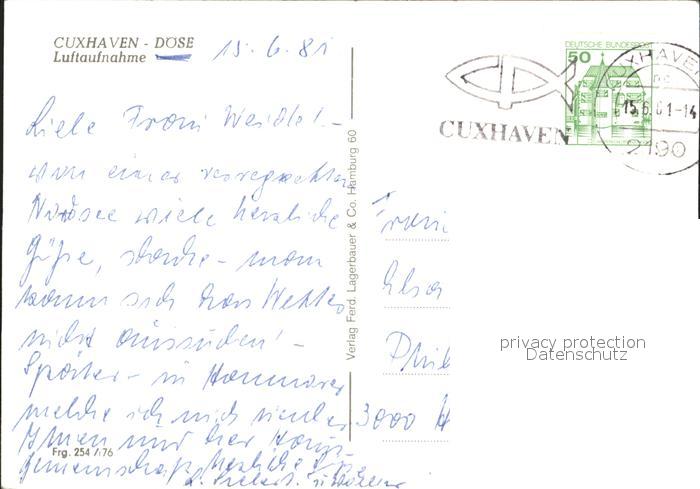 CUXHAVEN - DÖSE
Luftaufnahme
15.6.81
DEUTSCHE BUNDESPOST
50
CUXHAVEN
CUXHAVEN
15.6.81-14
2190
Liebe Frau Weidle! -
von einer verregneten
Nordsee viele herzliche
Grüße, - man
kann sich das Wetter
nicht aussuchen! -
Später - in Hannover
melde ich mich wieder
Ihnen und der Haus-
gemeinschaft herzliche
Verlag Ferd. Lagerbauer & Co. Hamburg 60
Frau
Elsa
3000 H
Frg. 254 /76
privacy protection
Datenschutz